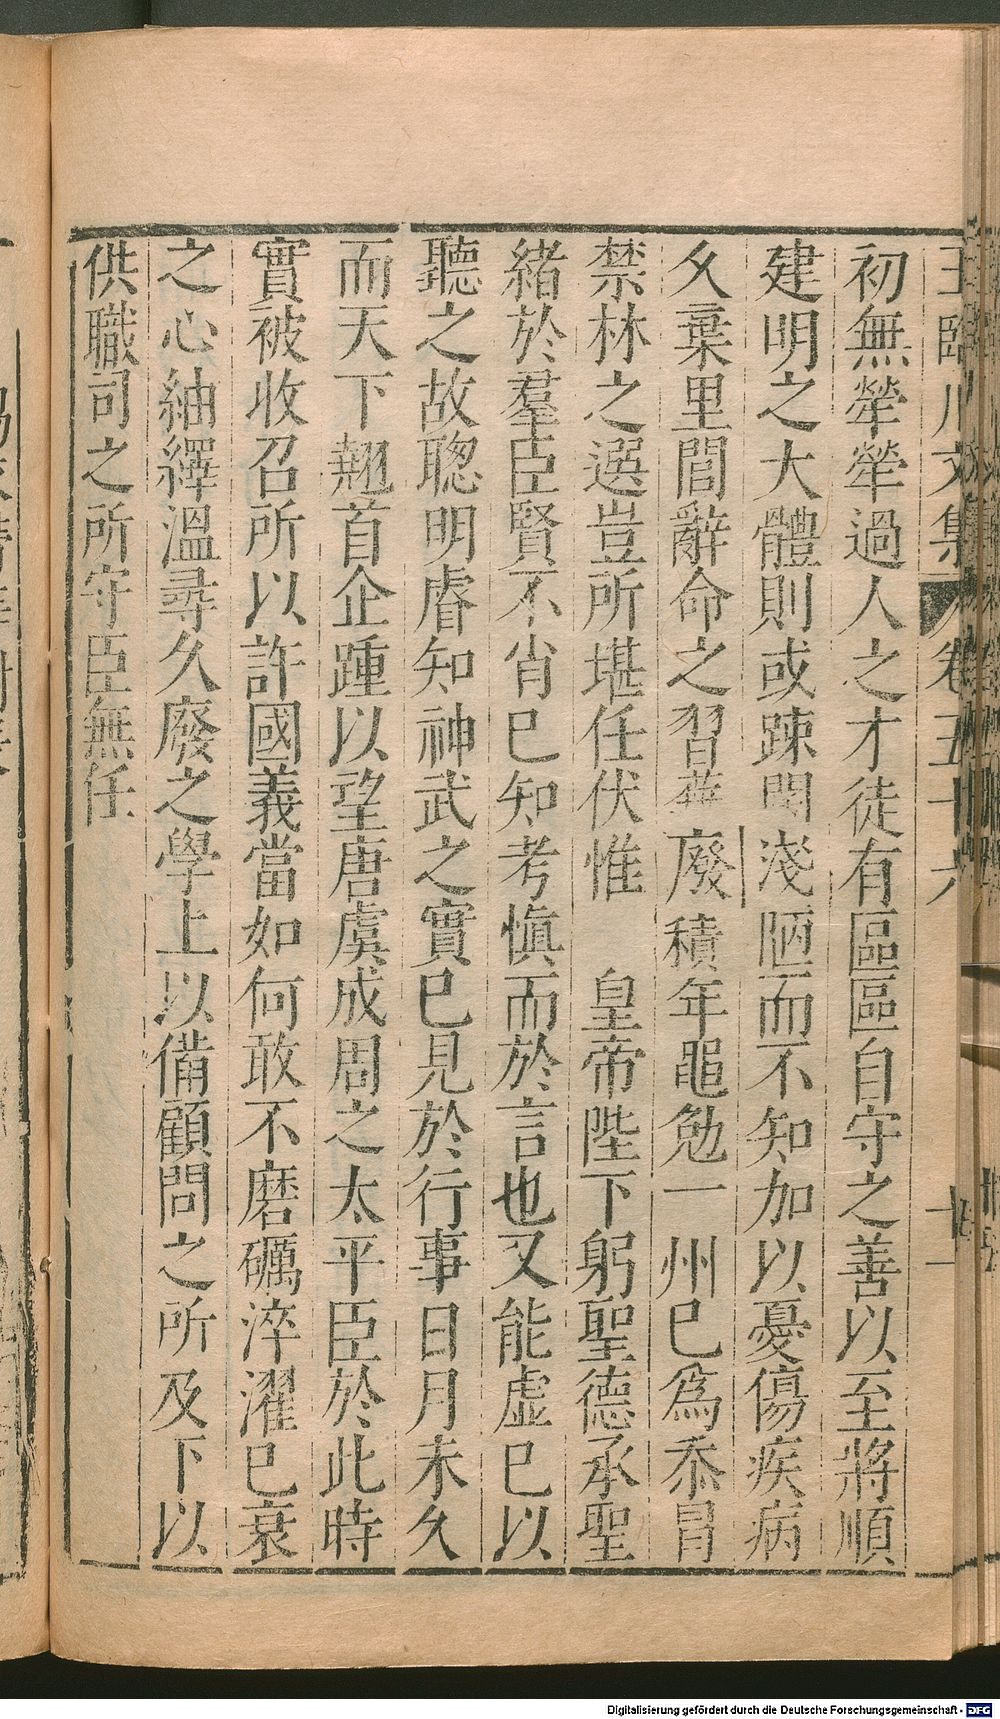 王臨川文集 卷五十六 十一
初無犖犖過人之才徒有區區自守之善以至將順
建明之大體則或踈闊淺陋而不知加以憂傷疾病
久棄里閭辭命之習蕪廢積年黽勉一州已為忝冒
禁林之選豈所堪任伏惟 皇帝陛下躬聖德承聖
緒於羣臣賢不肖已知考慎而於言也又能虛已以
聽之故聰明睿知神武之實已見於行事日月未久
而天下翹首企踵以望唐虞成周之太平臣於此時
實被收召所以許國義當如何敢不磨礪淬濯已衰
之心紬繹溫尋久廢之學上以備顧問之所及下以
供職司之所守臣無任
Digitalisierung gefördert durch die Deutsche Forschungsgemeinschaft - DFG